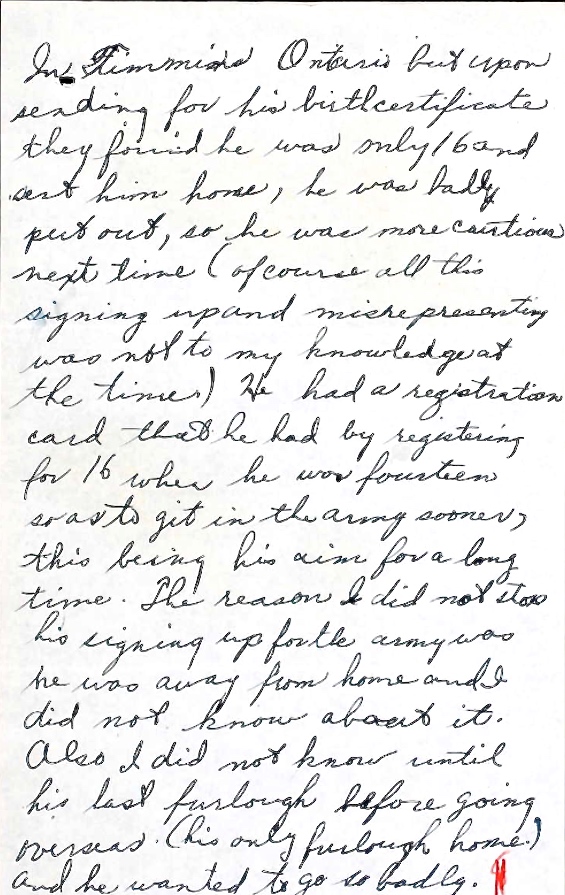 In Timmins Ontario but upon
sending for his birthcertificate
they found he was only 16 and
sent him home, he was badly
put out, so he was more cautious
next time (ofcourse all this
signing up and misrepresenting
was not to my knowledge at
the time.) He had a registration
card that he had by registering
for 16 when he was fourteen
so as to git in the army sooner,
this being his aim for a long
time. The reason I did not stop
his signing up for the army was
he was away from home and I
did not know about it.
Also I did not know until
his last furlough before going
overseas. (his only furlough home.)
and he wanted to go so badly.